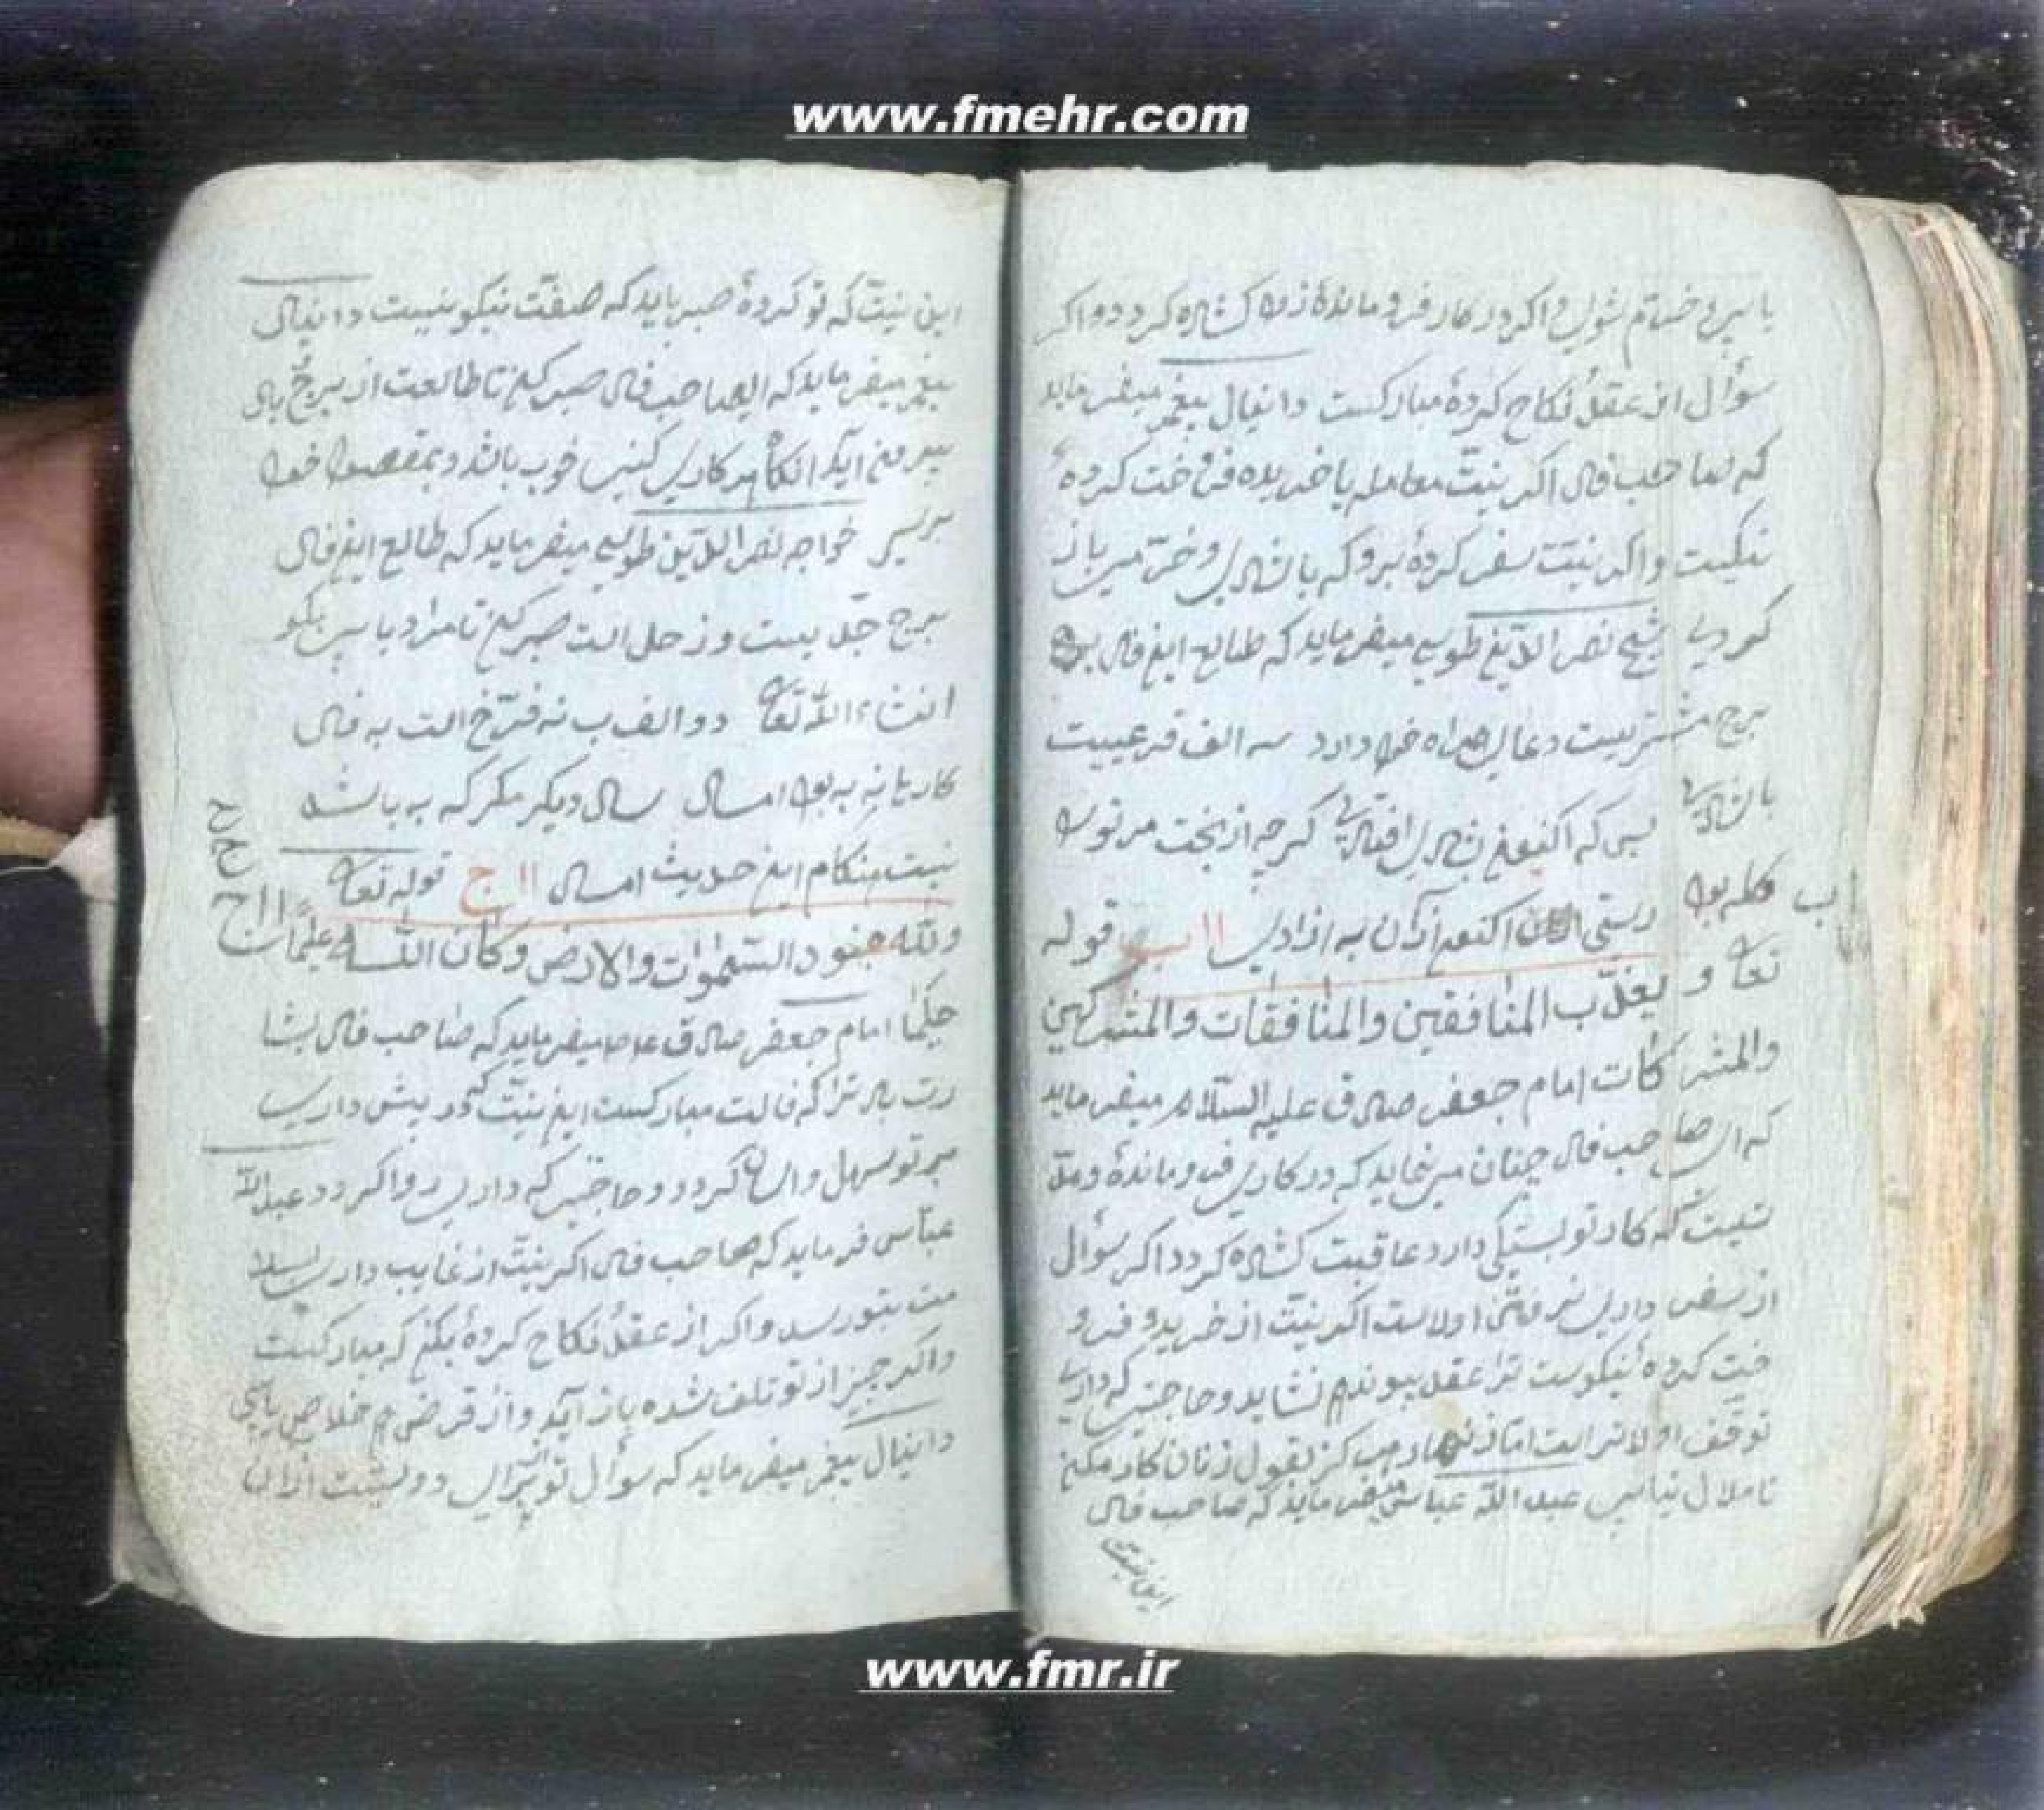 www.fmehr.com
یابی و خرم شوی و اکر در کار فرو مانده زود کشاده کردد و اکر
سؤال از عقد نکاح کرده مبارکست دانیال پیغمبر میفرماید
که ایصاحب فال اکر نیت معامله یا خرید و فروخت کرده
نیکست و اکر نیت سفر کردهٔ برو که باشادی و خرمی باز
کردی شیخ نصرالدین طوسی میفرماید که طالع این فال
برج مشتریست دعای همراه خود دارد سه الف قرعیست
باشادی بسی که اکنون افتادی کرچه از بخت مر تورا
کله بود رستی اکنون از آن به ازادی ااب قوله
اب
تعا و یعذب المنافقین والمنافقات والمشرکین
والمشرکات امام جعفر صادق علیه السلام میفرماید
که ای صاحب فال چنان مینماید که در کاری فرو ماندهٔ و
نیست که کار تو بستکی دارد عاقبت کشاده کردد اکر سؤال
از سفر داری نرفتن اولاست اکر نیت از خرید و فرو
خت کردهٔ نیکوست ترا عقد پیوندم نشاید و حاجتی که داری
توقف اولاتر است اما زنهار هر کز بقول زنان کار مکن
تا ملال نیابی عبدالله عباس میفرماید که صاحب فال
این نیت
این نیت که تو کردهٔ صبر باید که صفت نیکو نیست دانیال
پیغمبر میفرماید که ایصاحب فال صبر کن تا طالعت از برج
بیرون آید انکاه هر کاری کنی خوب باشد و بمقصود خود
برسی خواجه نصرالدین طوسی میفرماید که طالع این فال
برج جدیست و زحل است صبر کن تا مراد یابی نیکو
انشاءالله تعا دو الف ب نه فرخ است به فال
کارها نه به بود امسال سال دیکر مکر که به باشد
نیست هنکام این حدیث امسال ااج قوله تعا
ااج
ولله جنود السموات والارض وکان الله علیما
حکیما امام جعفر صادق ع میفرماید که صاحب فال بشا
رت باد ترا که فالت مبارکست این نیت که در پیش داری
بر تو سهل و اسان کردد و حاجتی که داری روا کردد عبدالله
عباس فرماید که صاحب فال اکر نیت از غایب داری بسلا
مت بتو رسد و اکر از عقد نکاح کردهٔ بکن که مبارکست
و اکر چیزی از تو تلف شده باز آید و از قرض هم خلاص یابی
دانیال پیغمبر میفرماید که سؤال تو برای دولتست از ان
www.fmr.ir